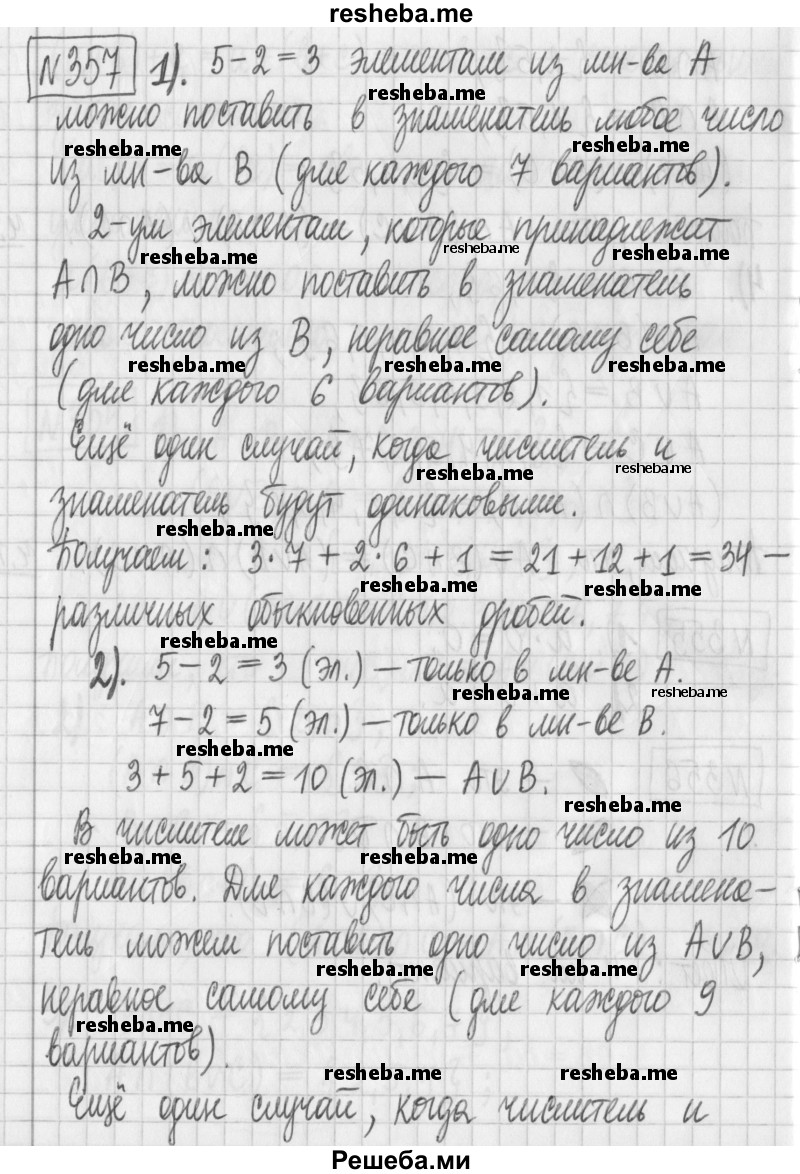 resheba.me
№357 1). 5-2=3 элементам из мн-ва А
resheba.me
можно поставить в знаменатель любое число
resheba.me resheba.me
из мн-ва В (для каждого 7 вариантов).
2-ум элементам, которые принадлежат
resheba.me resheba.me resheba.me
А∩В, можно поставить в знаменатель
одно число из В, неравное самому себе
resheba.me resheba.me resheba.me
(для каждого 6 вариантов).
Ещё один случай, когда числитель и
resheba.me resheba.me
знаменатель будут одинаковыми.
resheba.me
Получаем: 3·7+2·6+1=21+12+1=34 —
resheba.me resheba.me
различных обыкновенных дробей.
resheba.me
2). 5-2=3 (эл.) — только в мн-ве А.
resheba.me resheba.me
7-2=5 (эл.) — только в мн-ве В.
resheba.me
3+5+2=10 (эл.) — А∪В.
resheba.me
В числителе может быть одно число из 10
resheba.me resheba.me
вариантов. Для каждого числа в знамена-
тель можем поставить одно число из А∪В,
resheba.me resheba.me
неравное самому себе (для каждого 9
resheba.me
вариантов).
resheba.me resheba.me
Ещё один случай, когда числитель и
Решеба.ми